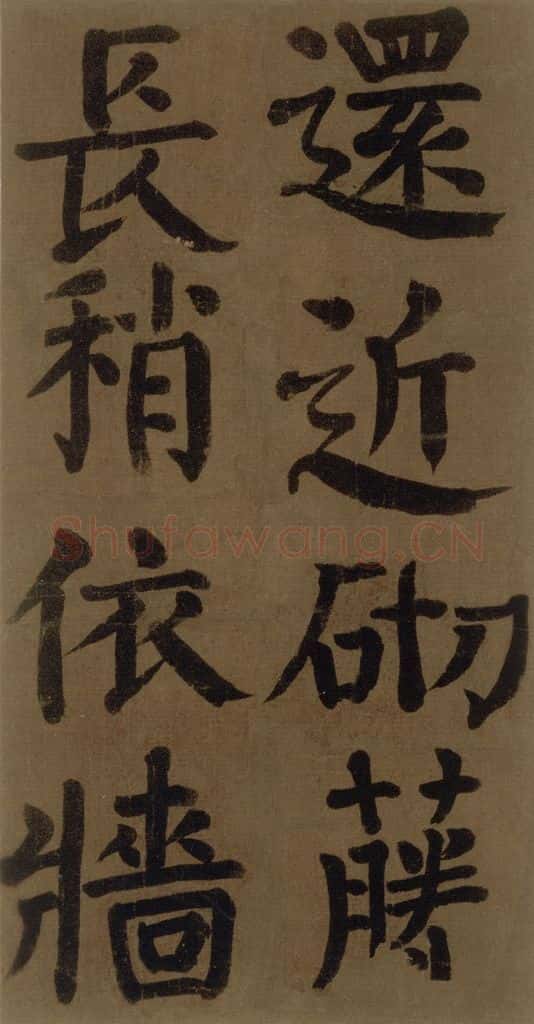 還近砌藤
長稍依牆
Shufawang.CN